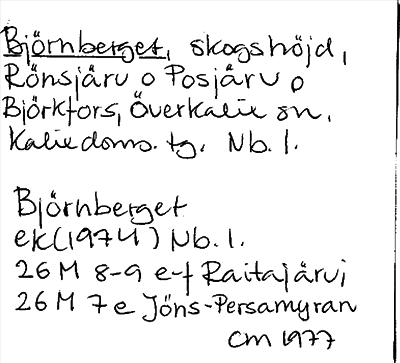 Björnberget, skogshöjd,
Rönsjärv o Posjärv o
Björkfors, Överkalix sn.
Kalix doms. tg. Nb. l.
Björnberget
ek (1974) Nb. l.
26 M 8-9 e-f Raitajärvi
26 M 7 e Jöns-Persamyran
CM 1977